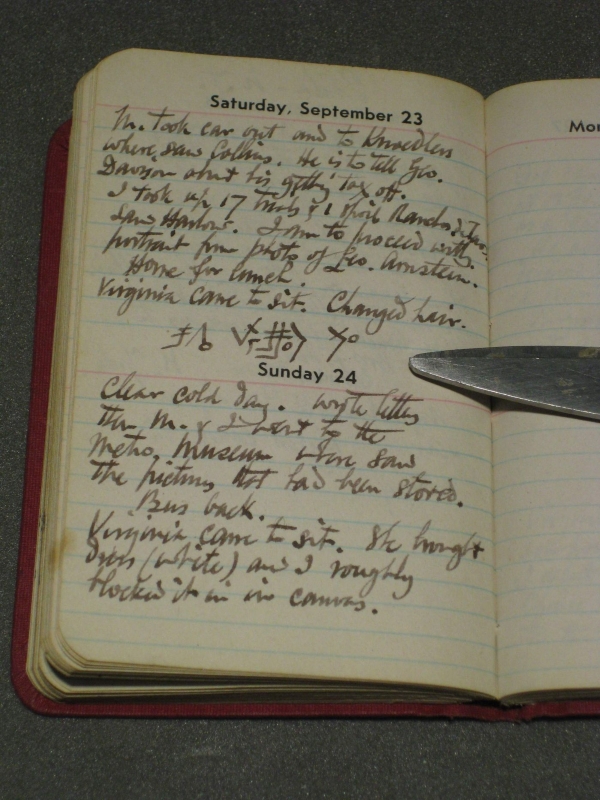 Saturday, September 23
Mon
M. took car out and to Knoedlers
where saw Collins. He is to tell Geo.
Davison about his getting tax off.
I took up 17 & 1
saw Harlow. I am to proceed with
portrait from photo of Geo. Arnstein.
Home for lunch.
Virginia came to sit. Changed hair.
Sunday 24
Clear cold day. Wrote letters
then M. & I went to the
Metro. Museum where saw
the pictures that had been stored.
Bus back.
Virginia came to sit. She brought
dress (white) and I roughly
blocked it in on canvas.